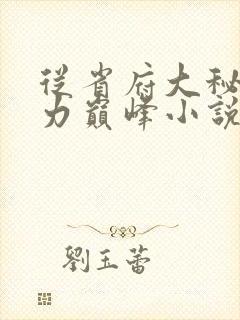 從省府大秘
力巔峰小說
劉玉蕾